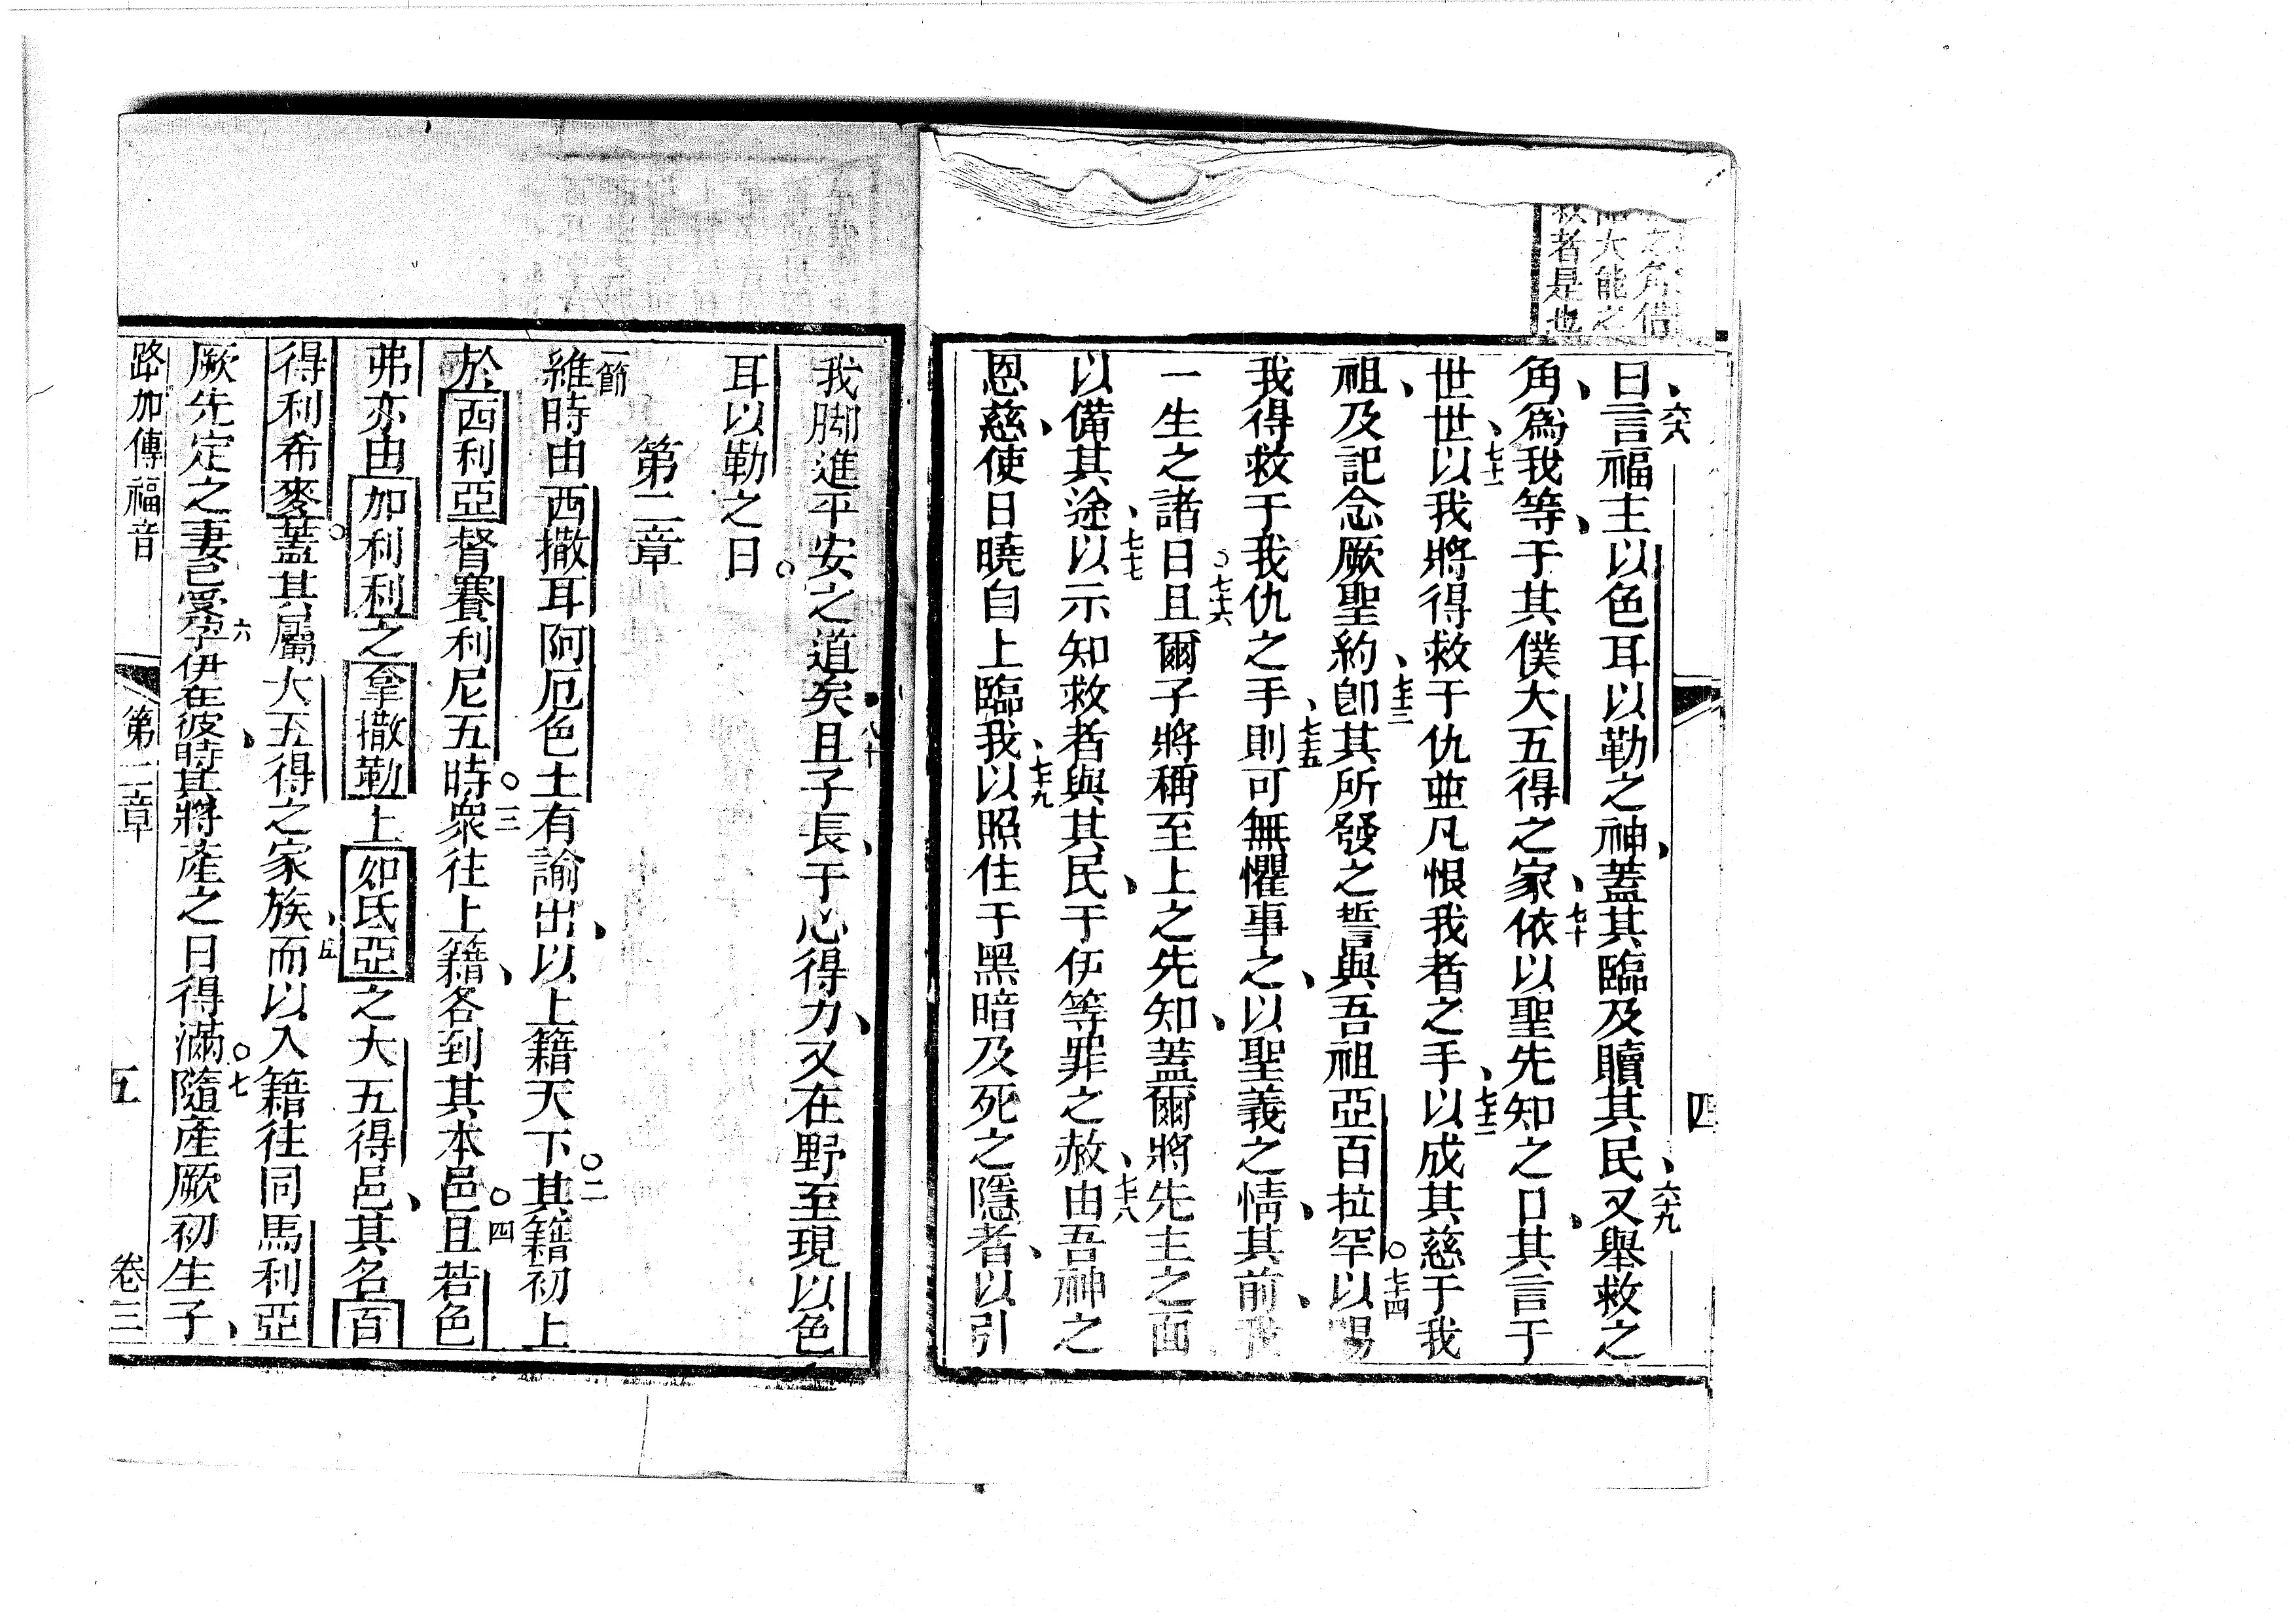 之角借
大能之
救者是也
曰言福主以色耳以勒之神蓋其臨及贖其民又舉救之
六八
六十九
角爲我等于其僕大五得之家依以聖先知之口其言于
七十
世世以我將得救于仇並凡恨我者之手以成其慈于我
七十一
七十二
祖及記念厥聖約卽其所發之誓與吾祖亞百拉罕以賜
七十三
七十四
我得救于我仇之手則可無懼事之以聖義之情其前我
七十五
一生之諸日且爾子將稱至上之先知蓋爾將先主之面
七十六
以備其途以示知救者與其民于伊等罪之赦由吾神之
七十七
七十八
恩慈使日曉自上臨我以照住于黑暗及死之隱者以引
七十九
四
我脚進平安之道矣且子長于心得力又在野至現以色
八十
耳以勒之日
第二章
維時由西撒耳阿厄色土有諭出以上籍天下其籍初上
一節
二
於西利亞督賽利尼五時衆往上籍各到其本邑且若色
三
四
弗亦由加利利之拿撒勒上如氐亞之大五得邑其名百
得利希麥蓋其屬大五得之家族而以入籍往同馬利亞
五
厥先定之妻已受孕伊在彼時其將產之日得滿隨產厥初生子
六
七
路加傳福音 第二章 五 卷三